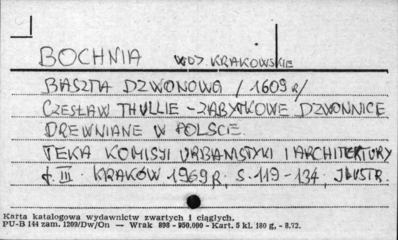 BOCHNIA WOJ KRAKOWSKIE
BASZTA DZWONOWA /1609 r/
CZESŁAW THULLIE - ZABYTKOWE DZWONNICE
DREWNIANE W POLSCE.
TEKA KOMISJI URBANISTYKI I ARCHITEKTURY
t. III. KRAKÓW 1969 R, S. 119-134, ILUSTR.
Karta katalogowa wydawnictw zwartych i ciągłych.
PU-B 144 zam. 1209/Dw/On — Wrak 898 - 950.000 - Kart. 5 kl. 180 g, - 8.72.